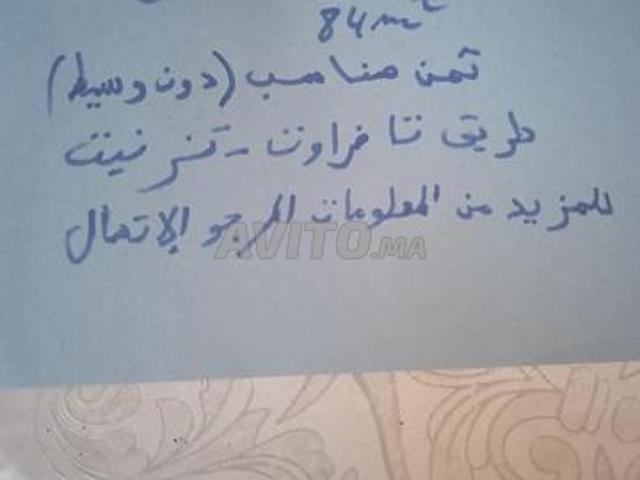 84m²
ثمن مناسب (دون وسيط)
طريق تافراوت - تزنيت
للمزيد من المعلومات المرجو الاتصال
AVITO.MA